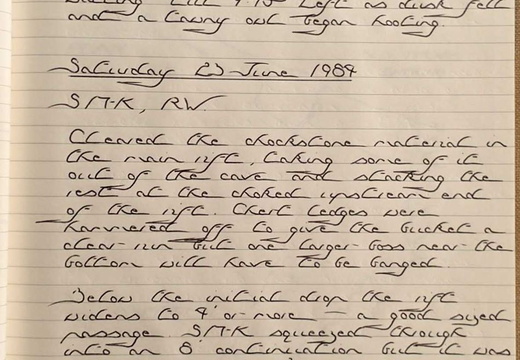 till 9.15. Left as dusk fell
and a tawny owl began hooting.
Saturday 23 June 1984
SMK, RW
Cleared the chockstone material in
the main rift, taking some of it
out of the cave and stacking the
rest at the choked upstream end
of the rift. Chert ledges were
hammered off to give the bucket a
clear run but one larger boss near the
bottom will have to be banged.
Below the initial drop the rift
widens to 4' or more — a good sized
passage SMK squeezed through
into an 8' continuation but it was